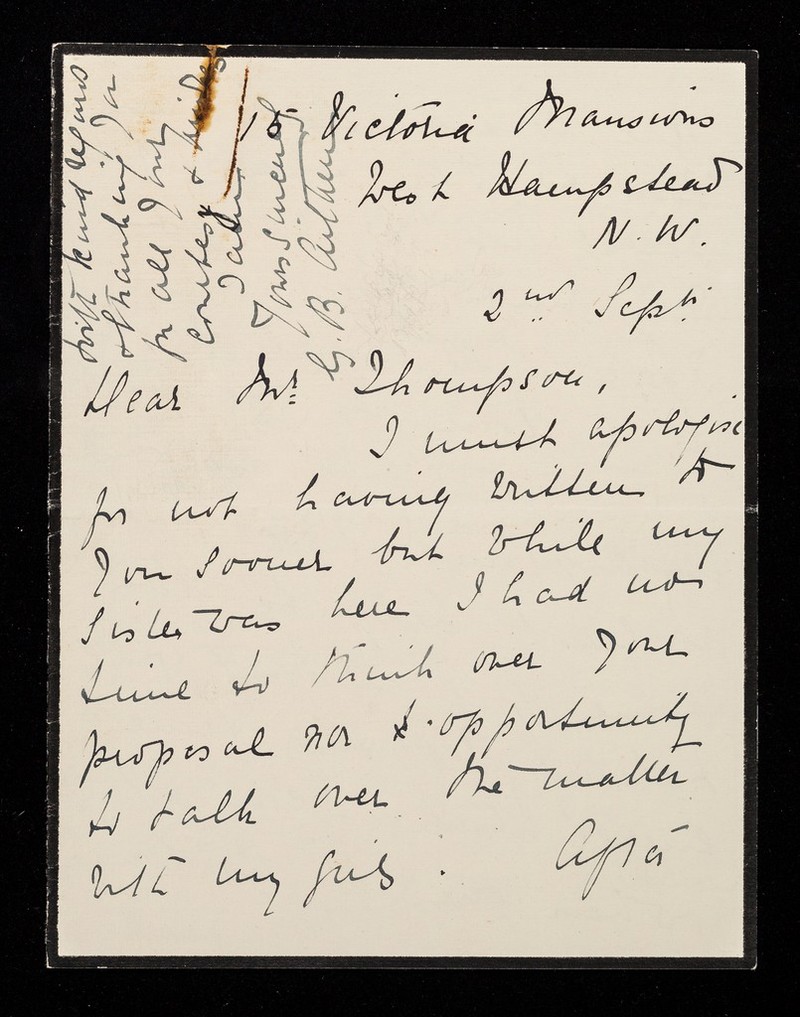 15 Victoria Mansions
West Hampstead
N. W.
2nd Sept.
Dear Mr. Thompson,
I must apologise
for not having written to
you sooner but while my
sister was here I had no
time to think over your
proposal nor opportunity
to talk over the matter
with my girls. After
With kind regards
& thanking you
for all your
courtesy &
I am
Yours sincerely
G. B.